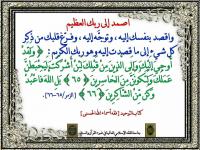 اصمد إلى ربك العظيم
واقصد بنفسك إليه ، وتوجّه إليه ، وفرّغ قلبك من ذكر
كل شيء إلى ما قصدت إليه وهو ربك الكريم : ﴿ وَلَقَدْ
أُوحِيَ إِلَيْكَ وَإِلَى الَّذِينَ مِنْ قَبْلِكَ لَئِنْ أَشْرَكْتَ لَيَحْبَطَنَّ
عَمَلُكَ وَلَتَكُونَنَّ مِنَ الْخَاسِرِينَ ﴿٦٥﴾ بَلِ اللَّهَ فَاعْبُدْ
وَكُنْ مِنَ الشَّاكِرِينَ ﴿٦٦﴾ ﴾ (الزمر/٦٥-٦٦)
كتاب التوحيد